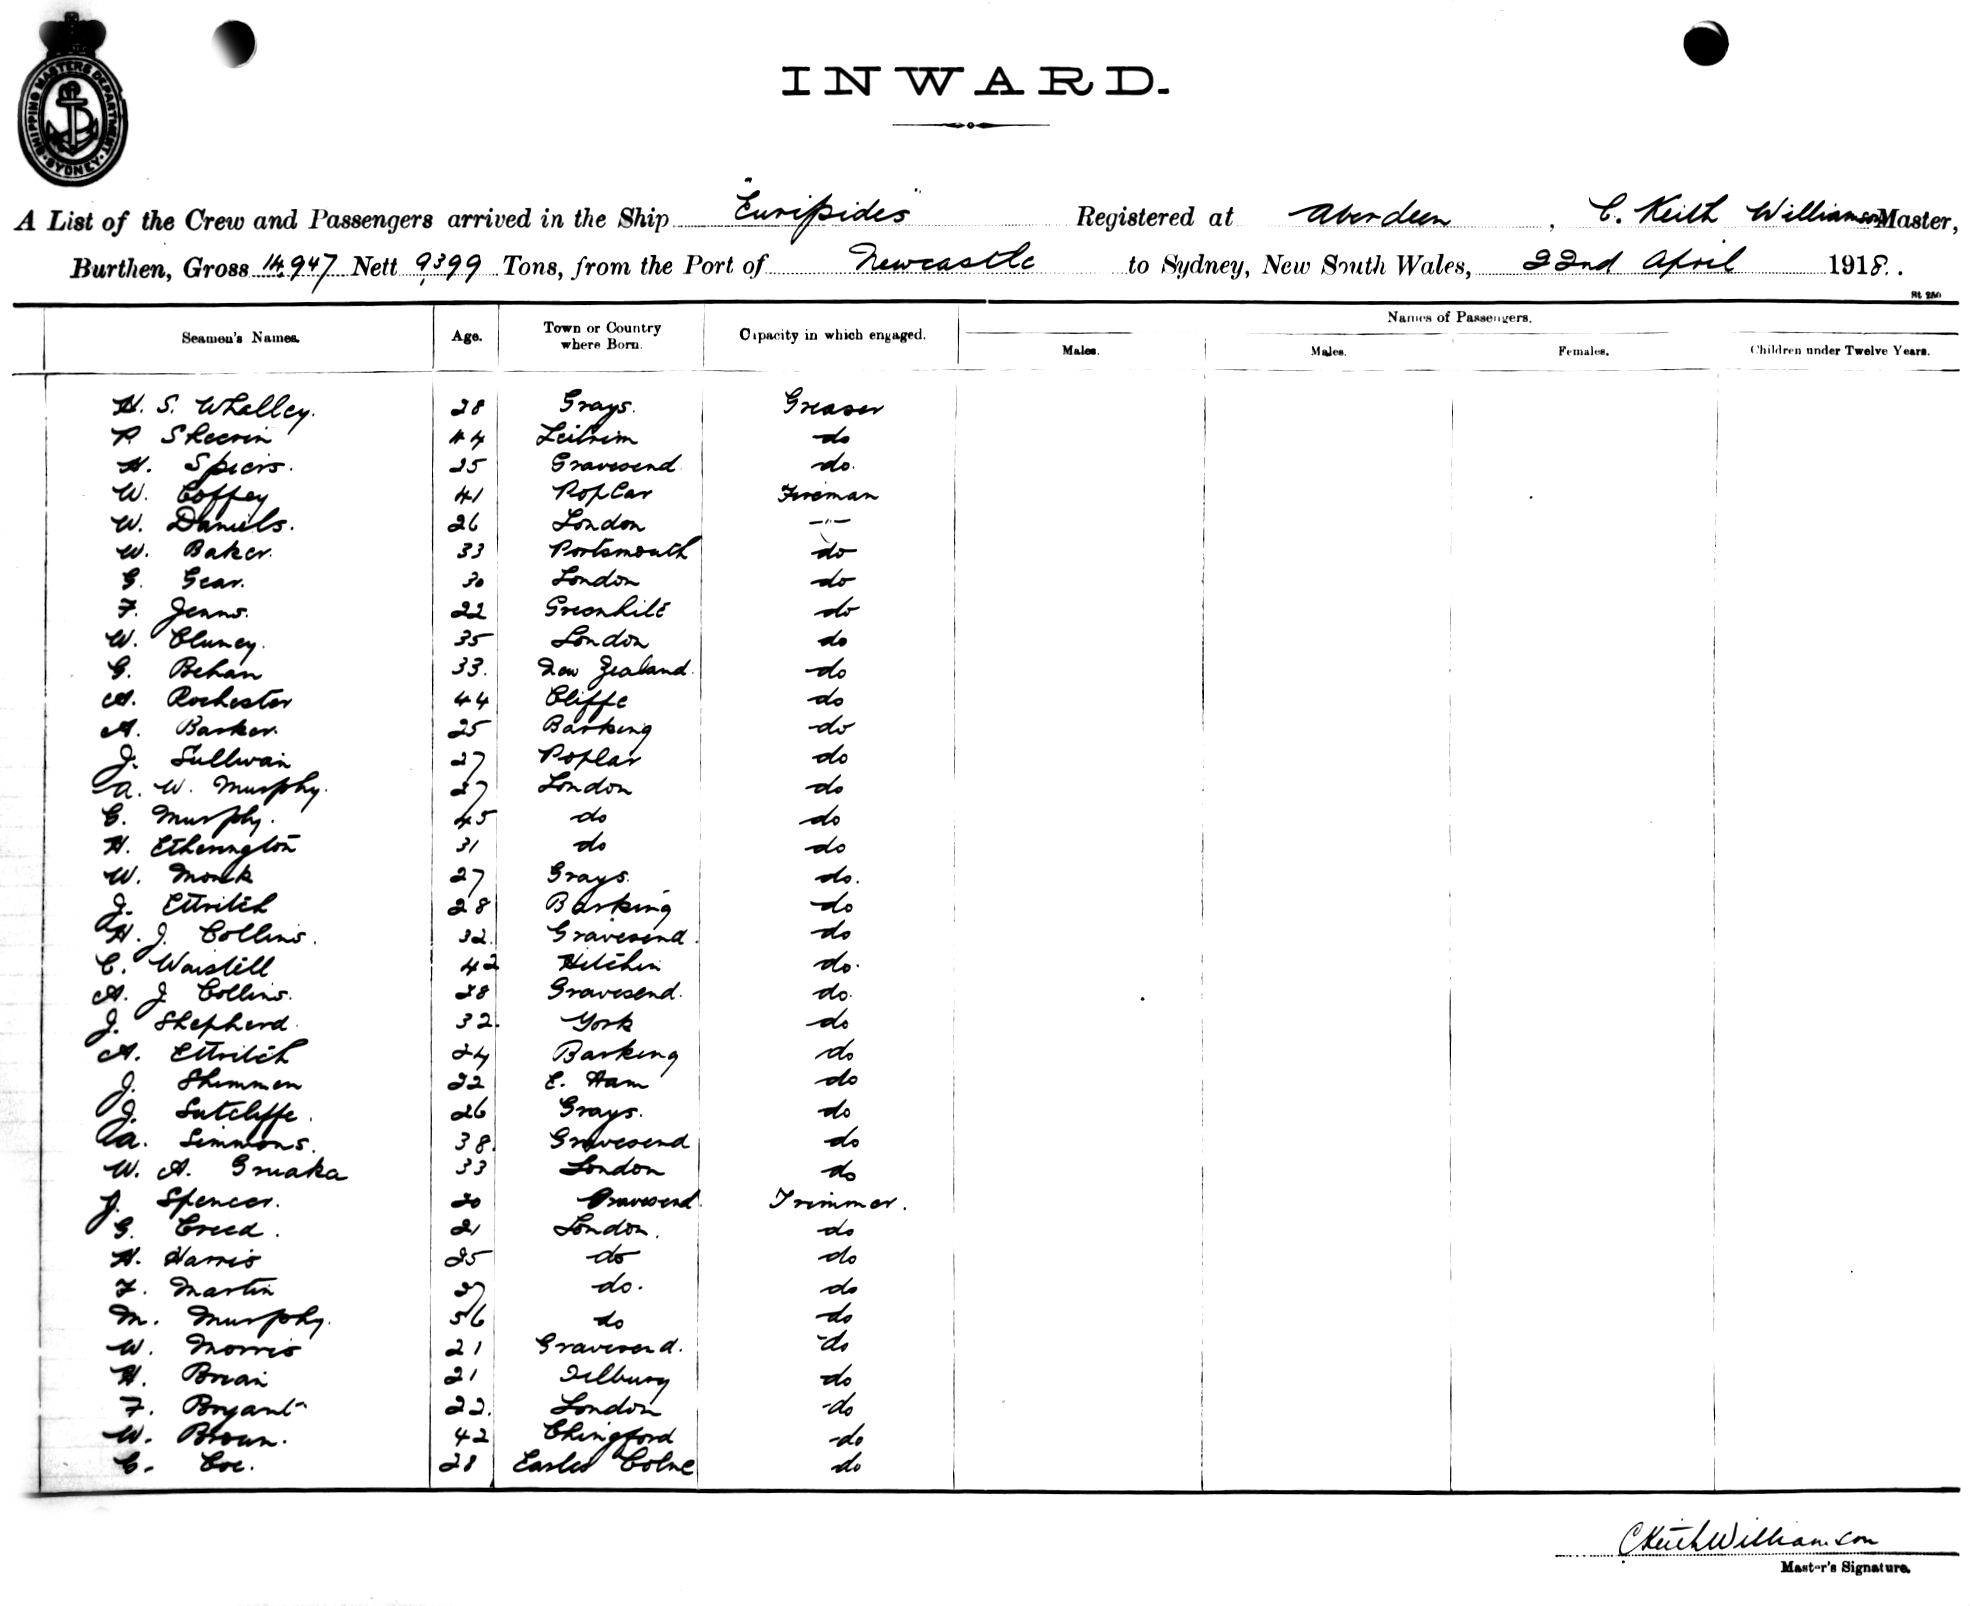 SHIPPING MASTERS DEPARTMENT. SYDNEY
INWARD.
A List of the Crew and Passengers arrived in the Ship "Euripides" Registered at Aberdeen, C. Keith Williamson Master,
Burthen, Gross 14,947 Nett 9399 Tons, from the Port of Newcastle to Sydney, New South Wales, 22nd April 1918.
St 250
Names of Passengers.
Seamen's Names. Age. Town or Country where Born. Capacity in which engaged. Males. Males. Females. Children under Twelve Years.
H. S. Whalley. 28 Grays. Greaser
P. Sheerin 44 Leitrim do
H. Spiers. 25 Gravesend do.
W. Coffey 41 Poplar Fireman
W. Daniels. 26 London -"-
W. Baker. 33 Portsmouth do
G. Gear. 30 London do
F. Jenns. 22 Greenhilt do
W. Cluney. 35 London do
G. Behan 33. New Zealand. do
A. Rochester 44 Cliffe do
A. Barker. 25 Barking do
J. Sullivan 27 Poplar do
A. W. Murphy. 27 London do
C. Murphy. 45 do do
H. Etherington 31 do do
W. Monk 27 Grays. do.
J. Ettritch 28 Barking do
H. J. Collins. 32. Gravesend. do
C. Waistell 42 Hitchin do.
A. J Collins. 28 Gravesend. do.
J. Shepherd. 32. York do
A. Ettritch 24 Barking do
J. Shimmen 22 E. Ham do
J. Sutcliffe. 26 Grays. do
A. Simmons. 38. Gravesend do
W. A. 33 London do
J. Spencer. 20 Gravesend. Trimmer.
G. Creed. 21 London. do
H. Harris 25 do do
F. Martin 27 do. do
M. Murphy. 56 do do
W. Morris 21 Gravesend. do
H. Brian 21 Tilbury do
F. Bryant 22. London do
W. Brown. 42 Chingford do
C. Coe. 28 Earles Colne do
C Keith Williamson
Master's Signature.